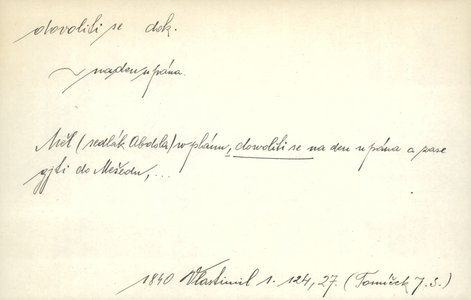 dovoliti se dok.
~ na den u pána.
Měl (sedlák Abdola) w plánu, dowoliti se na den u pána a zase
gjti do Mešedu, ...
1840 Vlastimil 1. 124, 27. (Tomíček J. S.)